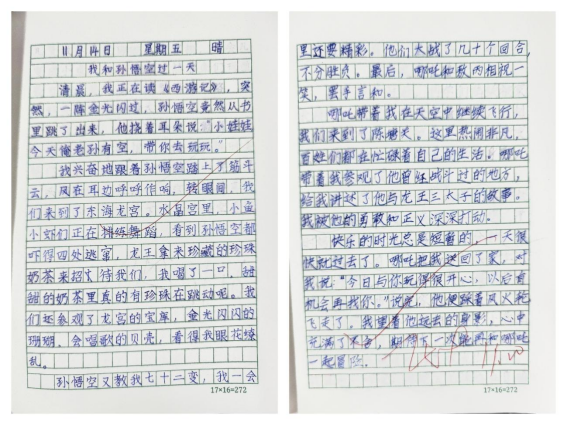 11月14日 星期五 晴
我和孙悟空过一天
清晨,我正在读《西游记》,突
然,一阵金光闪过,孙悟空竟然从书
里跳了出来,他挠着耳朵说:“小娃娃
今天俺老孙有空,带你去玩玩。”
我兴奋地跟着孙悟空踏上了筋斗
云,风在耳边呼呼作响,转眼间,我
们来到了东海龙宫。水晶宫里,小鱼
小虾们正在排练舞蹈,看到孙悟空都
吓得四处逃窜,龙王拿来珍藏的珍珠
奶茶来招待我们,我喝了一口,甜
甜的奶茶里真的有珍珠在跳动呢。我
们还参观了龙宫的宝库,金光闪闪的
珊瑚、会唱歌的贝壳,看得我眼花缭
乱。
孙悟空又教我七十二变,我一会
17×16=272
里还要精彩。他们大战了几十个回合,
不分胜负。最后,哪吒和敌内相视一
笑,罢手言和。
哪吒带着我在天空中继续飞行,
我们来到了陈塘关。这里热闹非凡,
百姓们都在忙碌着自己的生活。哪吒
带着我参观了他曾经战斗过的地方,
给我讲述了他与龙王三太子的故事。
我被他的勇敢和正义深深打动。
快乐的时光总是短暂的,一天很
快就过去了。哪吒把我送回了家,对
我说:“今日与你玩得很开心,以后有
机会再找你。”说完,他便踩着风火轮
飞走了。我望着他远去的身影,心中
充满了不舍,期待下一次能再和哪吒
一起冒险。
17×16=272